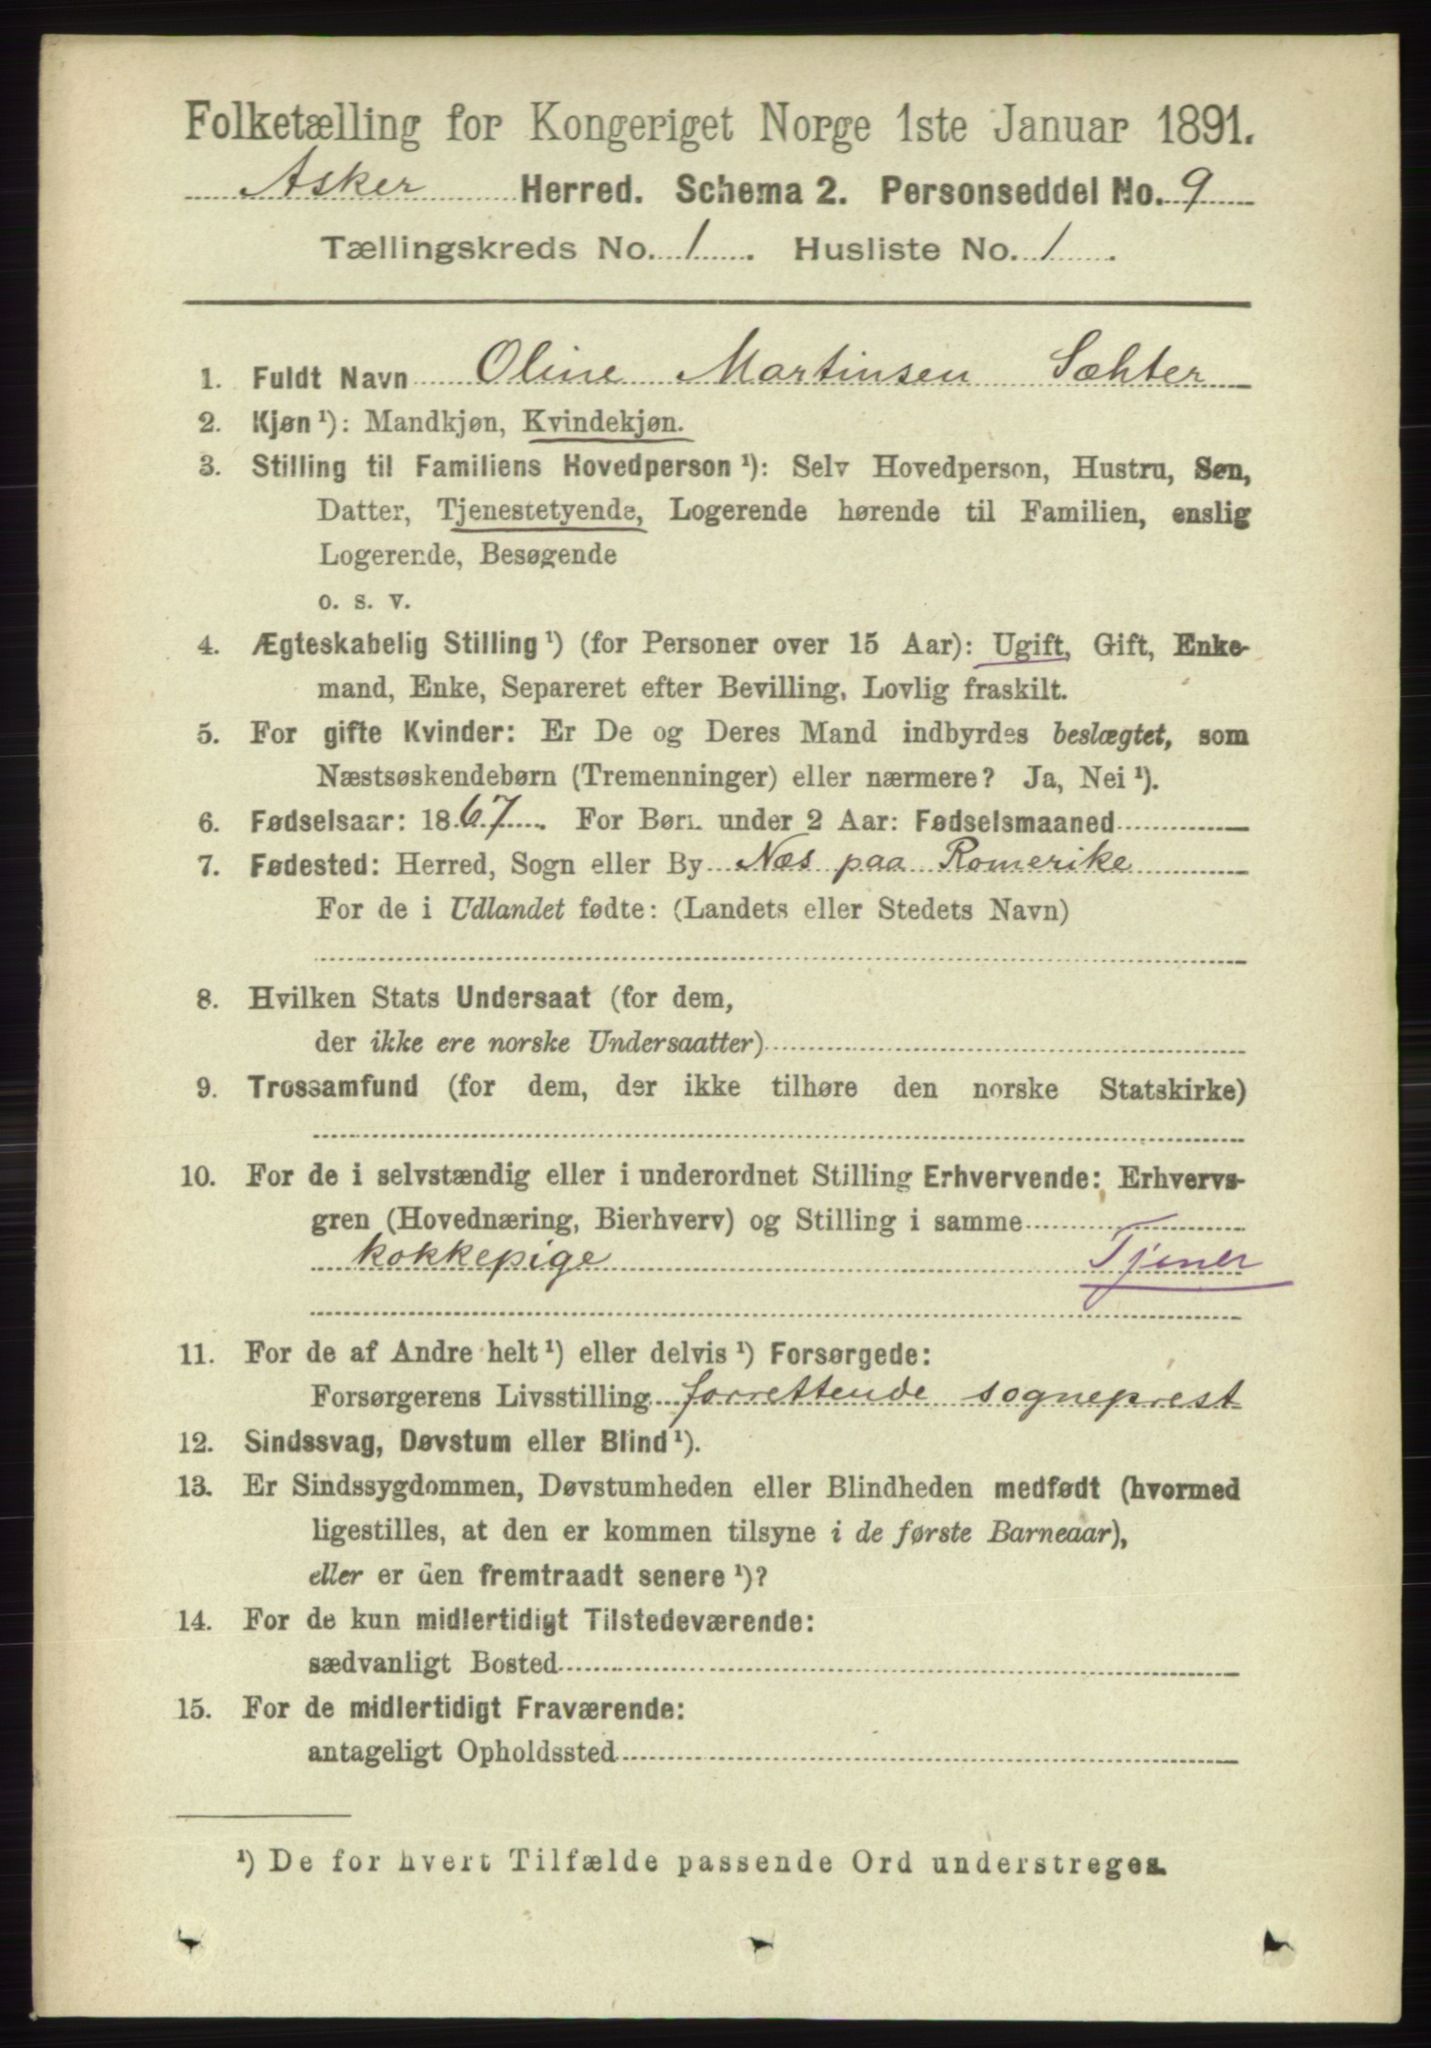 Folketælling for Kongeriget Norge 1ste Januar 1891.
Asker Herred. Schema 2. Personseddel No. 9
Tællingskreds No. 1. Husliste No. 1.
1. Fuldt Navn Oline Martinsen Sæhter
2. Kjøn ¹): Mandkjøn, Kvindekjøn.
3. Stilling til Familiens Hovedperson ¹): Selv Hovedperson, Hustru, Søn,
Datter, Tjenestetyende, Logerende hørende til Familien, enslig
Logerende, Besøgende
o. s. v.
4. Ægteskabelig Stilling ¹) (for Personer over 15 Aar): Ugift, Gift, Enke-
mand, Enke, Separeret efter Bevilling, Lovlig fraskilt.
5. For gifte Kvinder: Er De og Deres Mand indbyrdes beslægtet, som
Næstsøskendebørn (Tremenninger) eller nærmere? Ja, Nei ¹).
6. Fødselsaar: 1867. For Børn under 2 Aar: Fødselsmaaned
7. Fødested: Herred, Sogn eller By Næs paa Romerike
For de i Udlandet fødte: (Landets eller Stedets Navn)
8. Hvilken Stats Undersaat (for dem,
der ikke ere norske Undersaatter)
9. Trossamfund (for dem, der ikke tilhøre den norske Statskirke)
10. For de i selvstændig eller i underordnet Stilling Erhvervende: Erhvervs-
gren (Hovednæring, Bierhverv) og Stilling i samme
kokkepige Tjener
11. For de af Andre helt ¹) eller delvis ¹) Forsørgede:
Forsørgerens Livsstilling forrettende sogneprest
12. Sindssvag, Døvstum eller Blind ¹).
13. Er Sindssygdommen, Døvstumheden eller Blindheden medfødt (hvormed
ligestilles, at den er kommen tilsyne i de første Barneaar),
eller er den fremtraadt senere ¹)?
14. For de kun midlertidigt Tilstedeværende:
sædvanligt Bosted
15. For de midlertidigt Fraværende:
antageligt Opholdssted
¹) De for hvert Tilfælde passende Ord understreges.